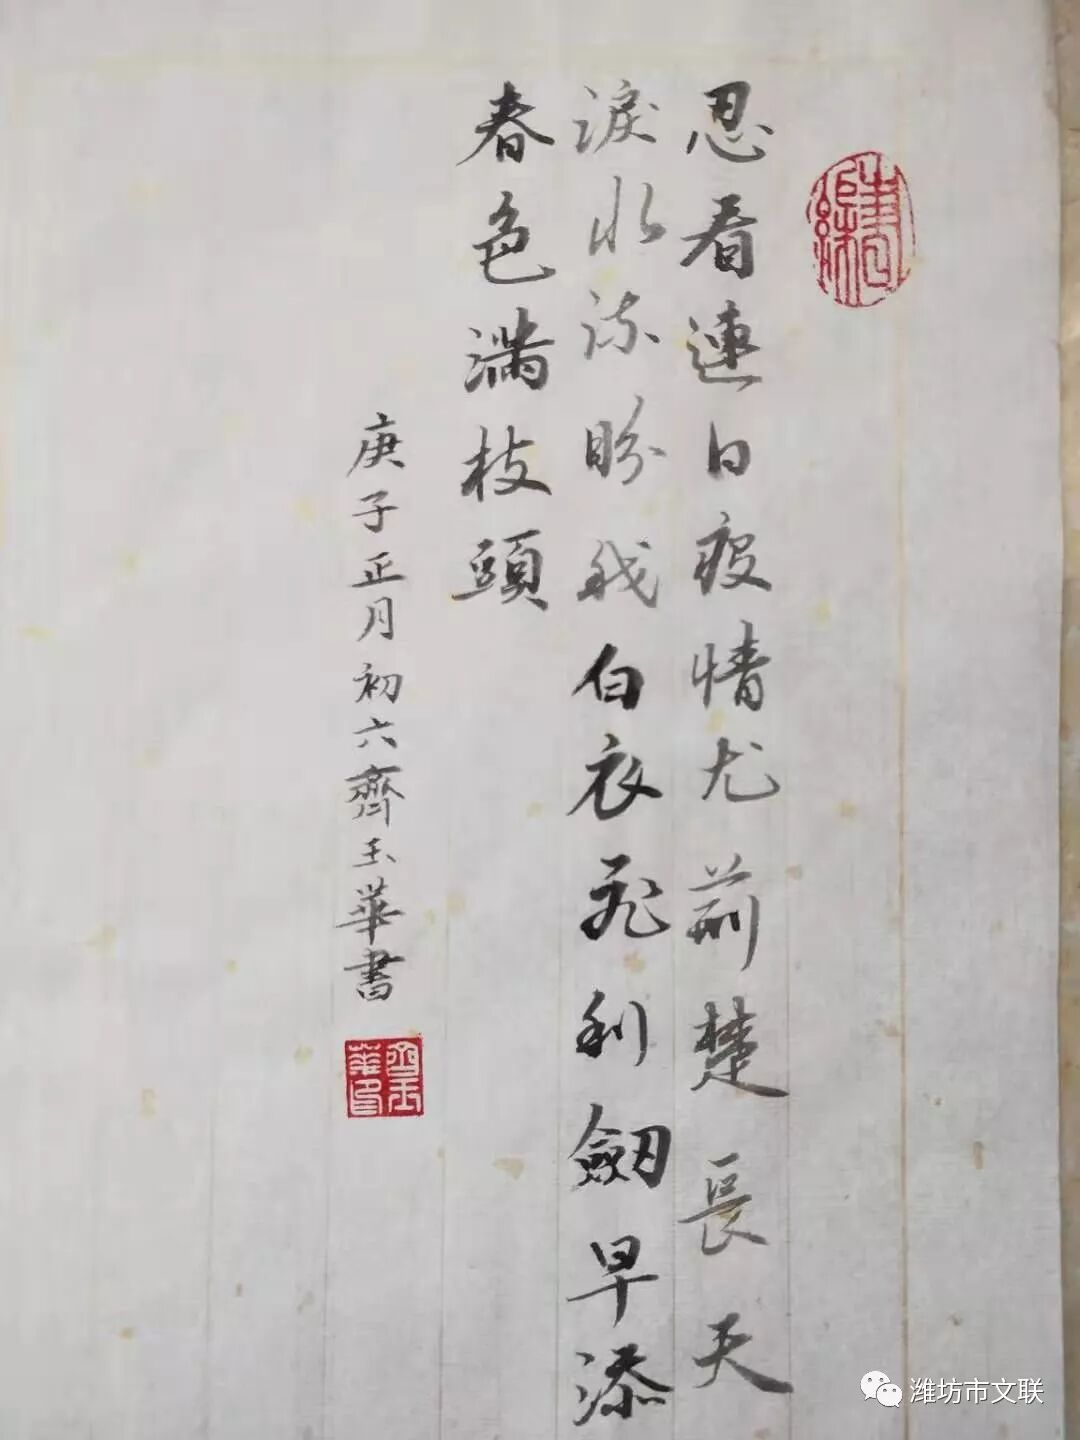 忍看連日疫情尤荊楚長天
淚水流盼我白衣飛利劒早添
春色滿枝頭
庚子正月初六齊玉華書
齊玉華印
潍坊市文联